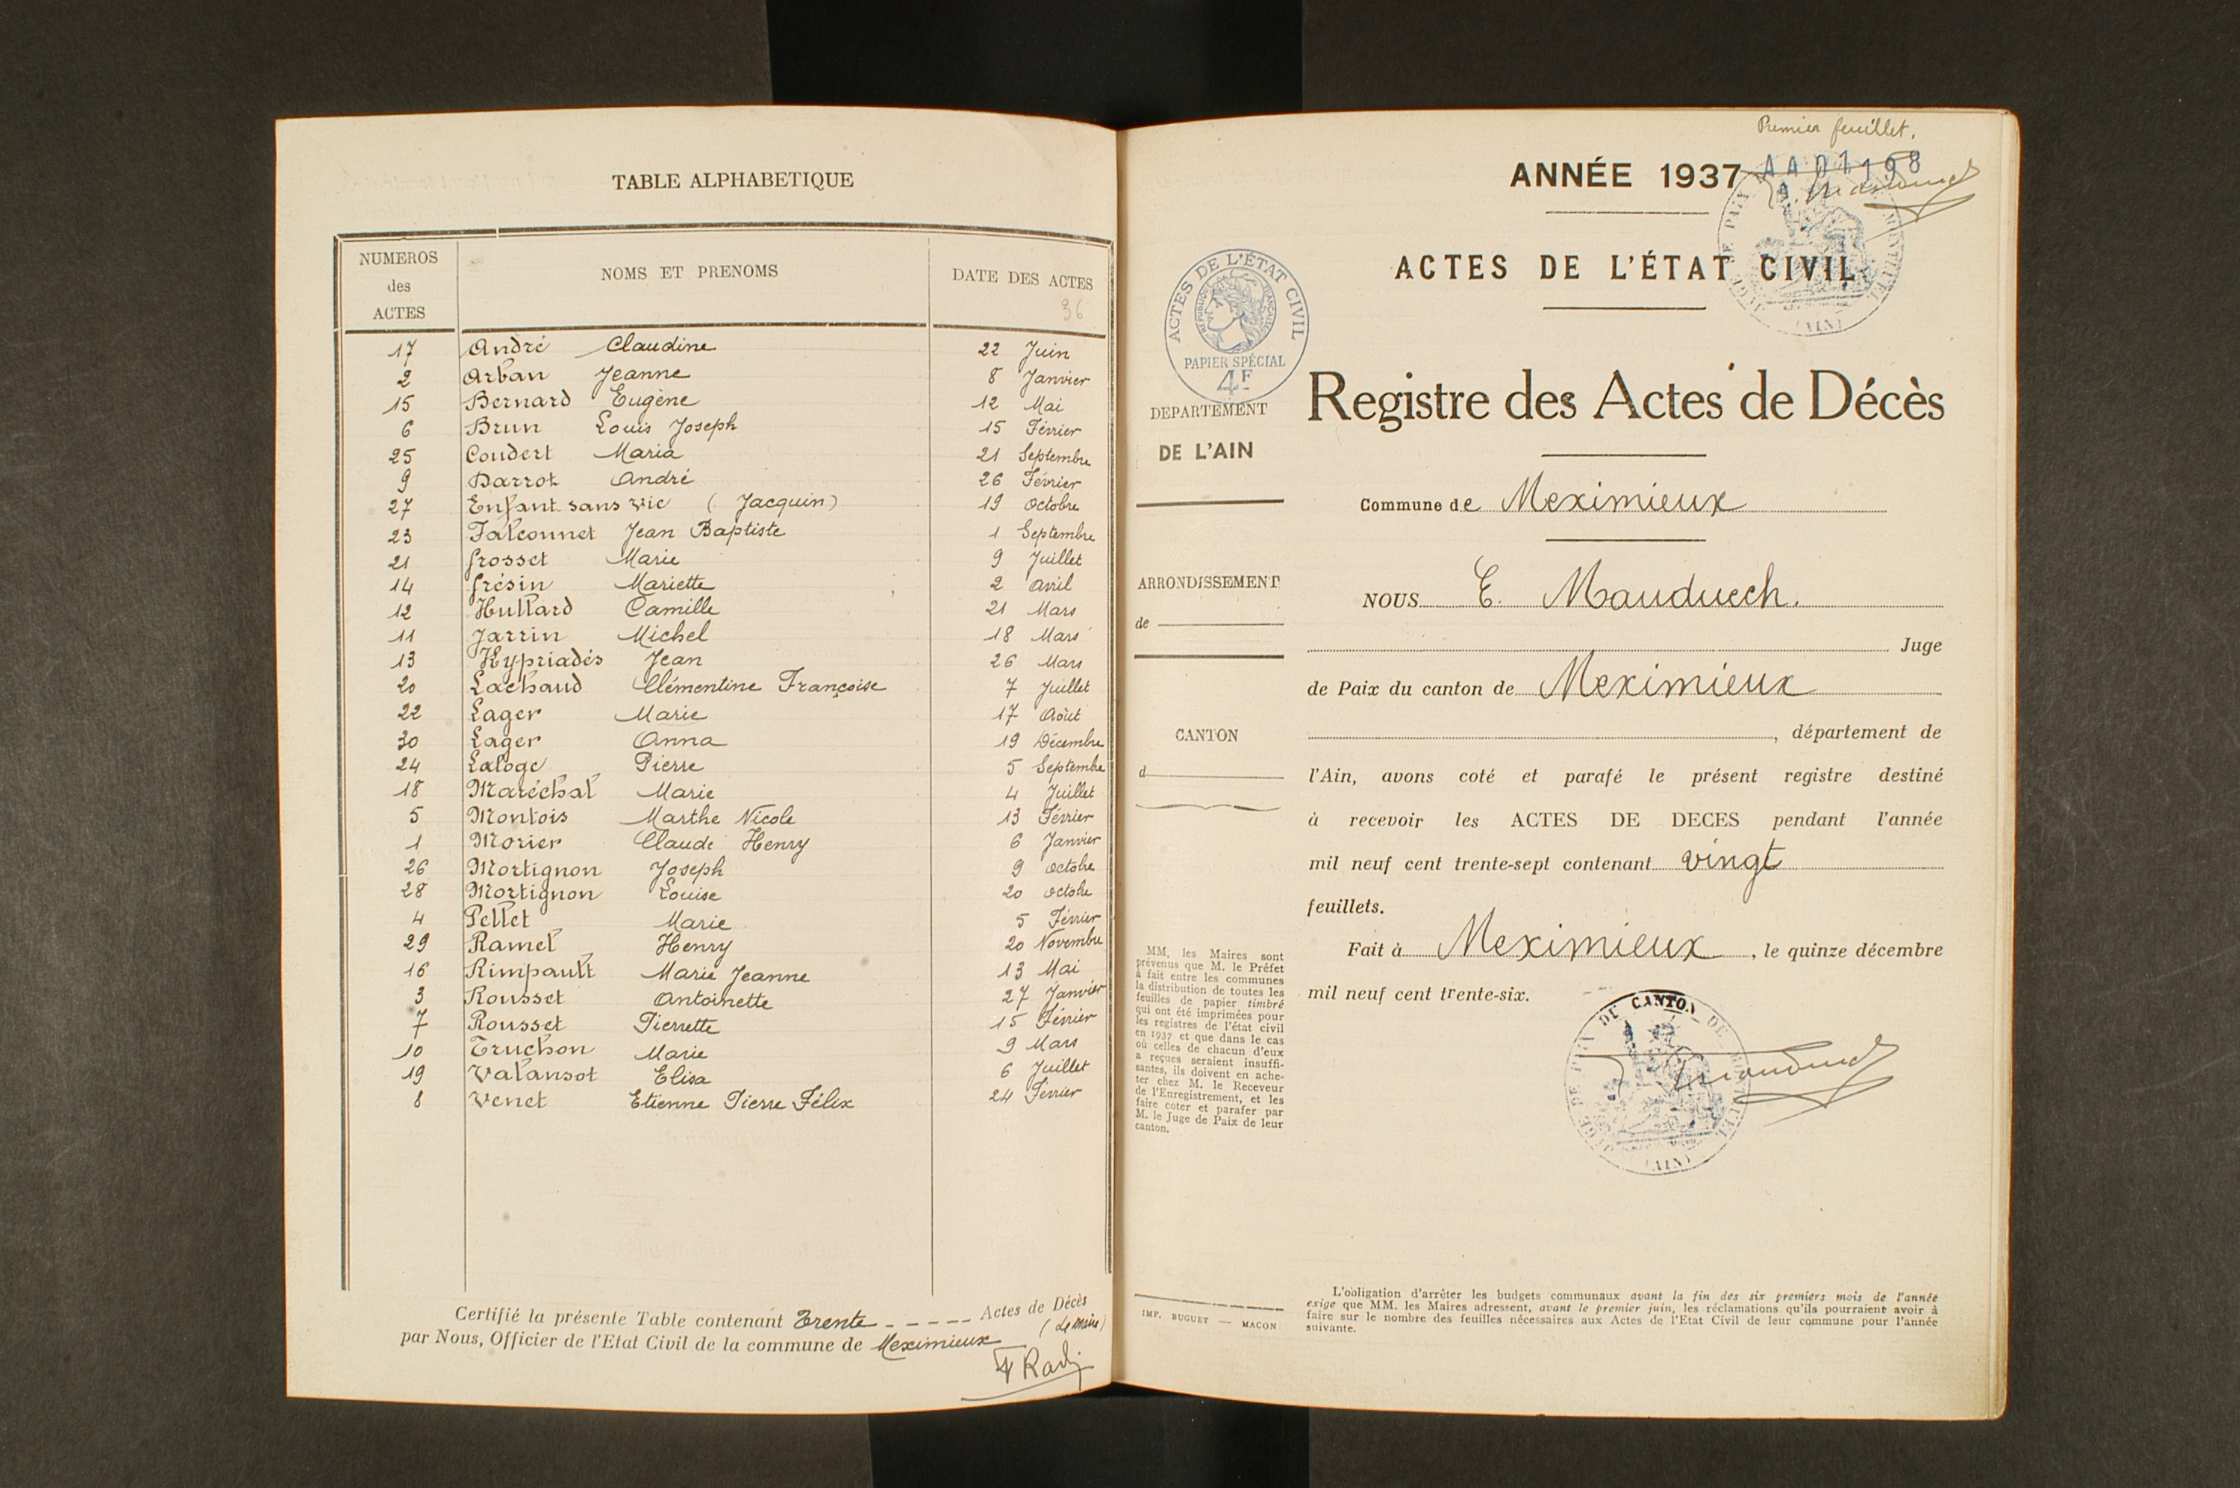 TABLE ALPHABETIQUE
NUMEROS des ACTES
NOMS ET PRENOMS
DATE DES ACTES
36
17 André Claudine 22 Juin
2 Arban Jeanne 8 Janvier
15 Bernard Eugène 12 Mai
6 Brun Louis Joseph 15 Février
25 Coudert Maria 21 Septembre
9 Darrot André 26 Février
27 Enfant sans vie (Jacquin) 19 Octobre
23 Falconnet Jean Baptiste 1 Septembre
21 Grosset Marie 9 Juillet
14 Grésin Mariette 2 Avril
12 Hullard Camille 21 Mars
11 Jarrin Michel 18 Mars
13 Kypriadés Jean 26 Mars
20 Lachaud Clémentine Françoise 7 Juillet
22 Lager Marie 17 Août
30 Lager Anna 19 Décembre
24 Laloge Pierre 5 Septembre
18 Maréchal Marie 4 Juillet
5 Montois Marthe Nicole 13 Février
1 Morier Claude Henry 6 Janvier
26 Mortignon Joseph 9 octobre
28 Mortignon Louise 20 octobre
4 Pellet Marie 5 Février
29 Ramel Henry 20 Novembre
16 Rimpault Marie Jeanne 13 Mai
3 Rousset Antoinette 27 Janvier
7 Rousset Pierrette 15 Février
10 Truchon Marie 9 Mars
19 Valansot Elisa 6 Juillet
8 Venet Etienne Pierre Félix 24 Février
Certifié la présente Table contenant Trente - - - - - Actes de Décès
par Nous, Officier de l'Etat Civil de la commune de Meximieux (Le Maire)
Premier feuillet.
ANNÉE 1937
ACTES DE L'ÉTAT CIVIL
ACTES DE L'ÉTAT CIVIL
RÉPUBLIQUE FRANÇAISE
PAPIER SPÉCIAL
4F
DEPARTEMENT
DE L'AIN
ARRONDISSEMENT
de
CANTON
d
MM. les Maires sont
prévenus que M. le Préfet
a fait entre les communes
la distribution de toutes les
feuilles de papier timbré
qui ont été imprimées pour
les registres de l'état civil
en 1937 et que dans le cas
où celles de chacun d'eux
a reçues seraient insuffi-
santes, ils doivent en ache-
ter chez M. le Receveur
de l'Enregistrement, et les
faire coter et parafer par
M. le Juge de Paix de leur
canton.
IMP. BUGUET — MACON
Registre des Actes de Décès
Commune de Meximieux
NOUS E. Mauduech.
Juge
de Paix du canton de Meximieux
, département de
l'Ain, avons coté et parafé le présent registre destiné
à recevoir les ACTES DE DECES pendant l'année
mil neuf cent trente-sept contenant vingt
feuillets.
Fait à Meximieux, le quinze décembre
mil neuf cent trente-six.
L'obligation d'arrêter les budgets communaux avant la fin des six premiers mois de l'année
exige que MM. les Maires adressent, avant le premier juin, les réclamations qu'ils pourraient avoir à
faire sur le nombre des feuilles nécessaires aux Actes de l'Etat Civil de leur commune pour l'année
suivante.